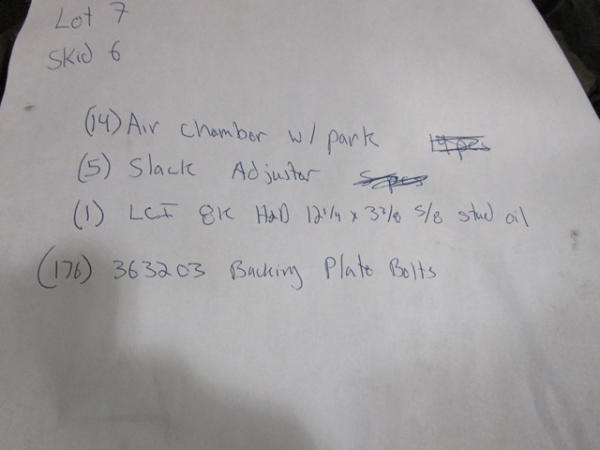 Lot 7
Skid 6
(14) Air Chamber w/ park
(5) Slack Adjuster
(1) LCI 8K H&D 12 1/4 x 3 3/8 5/8 stud oil
(176) 363203 Backing Plate Bolts